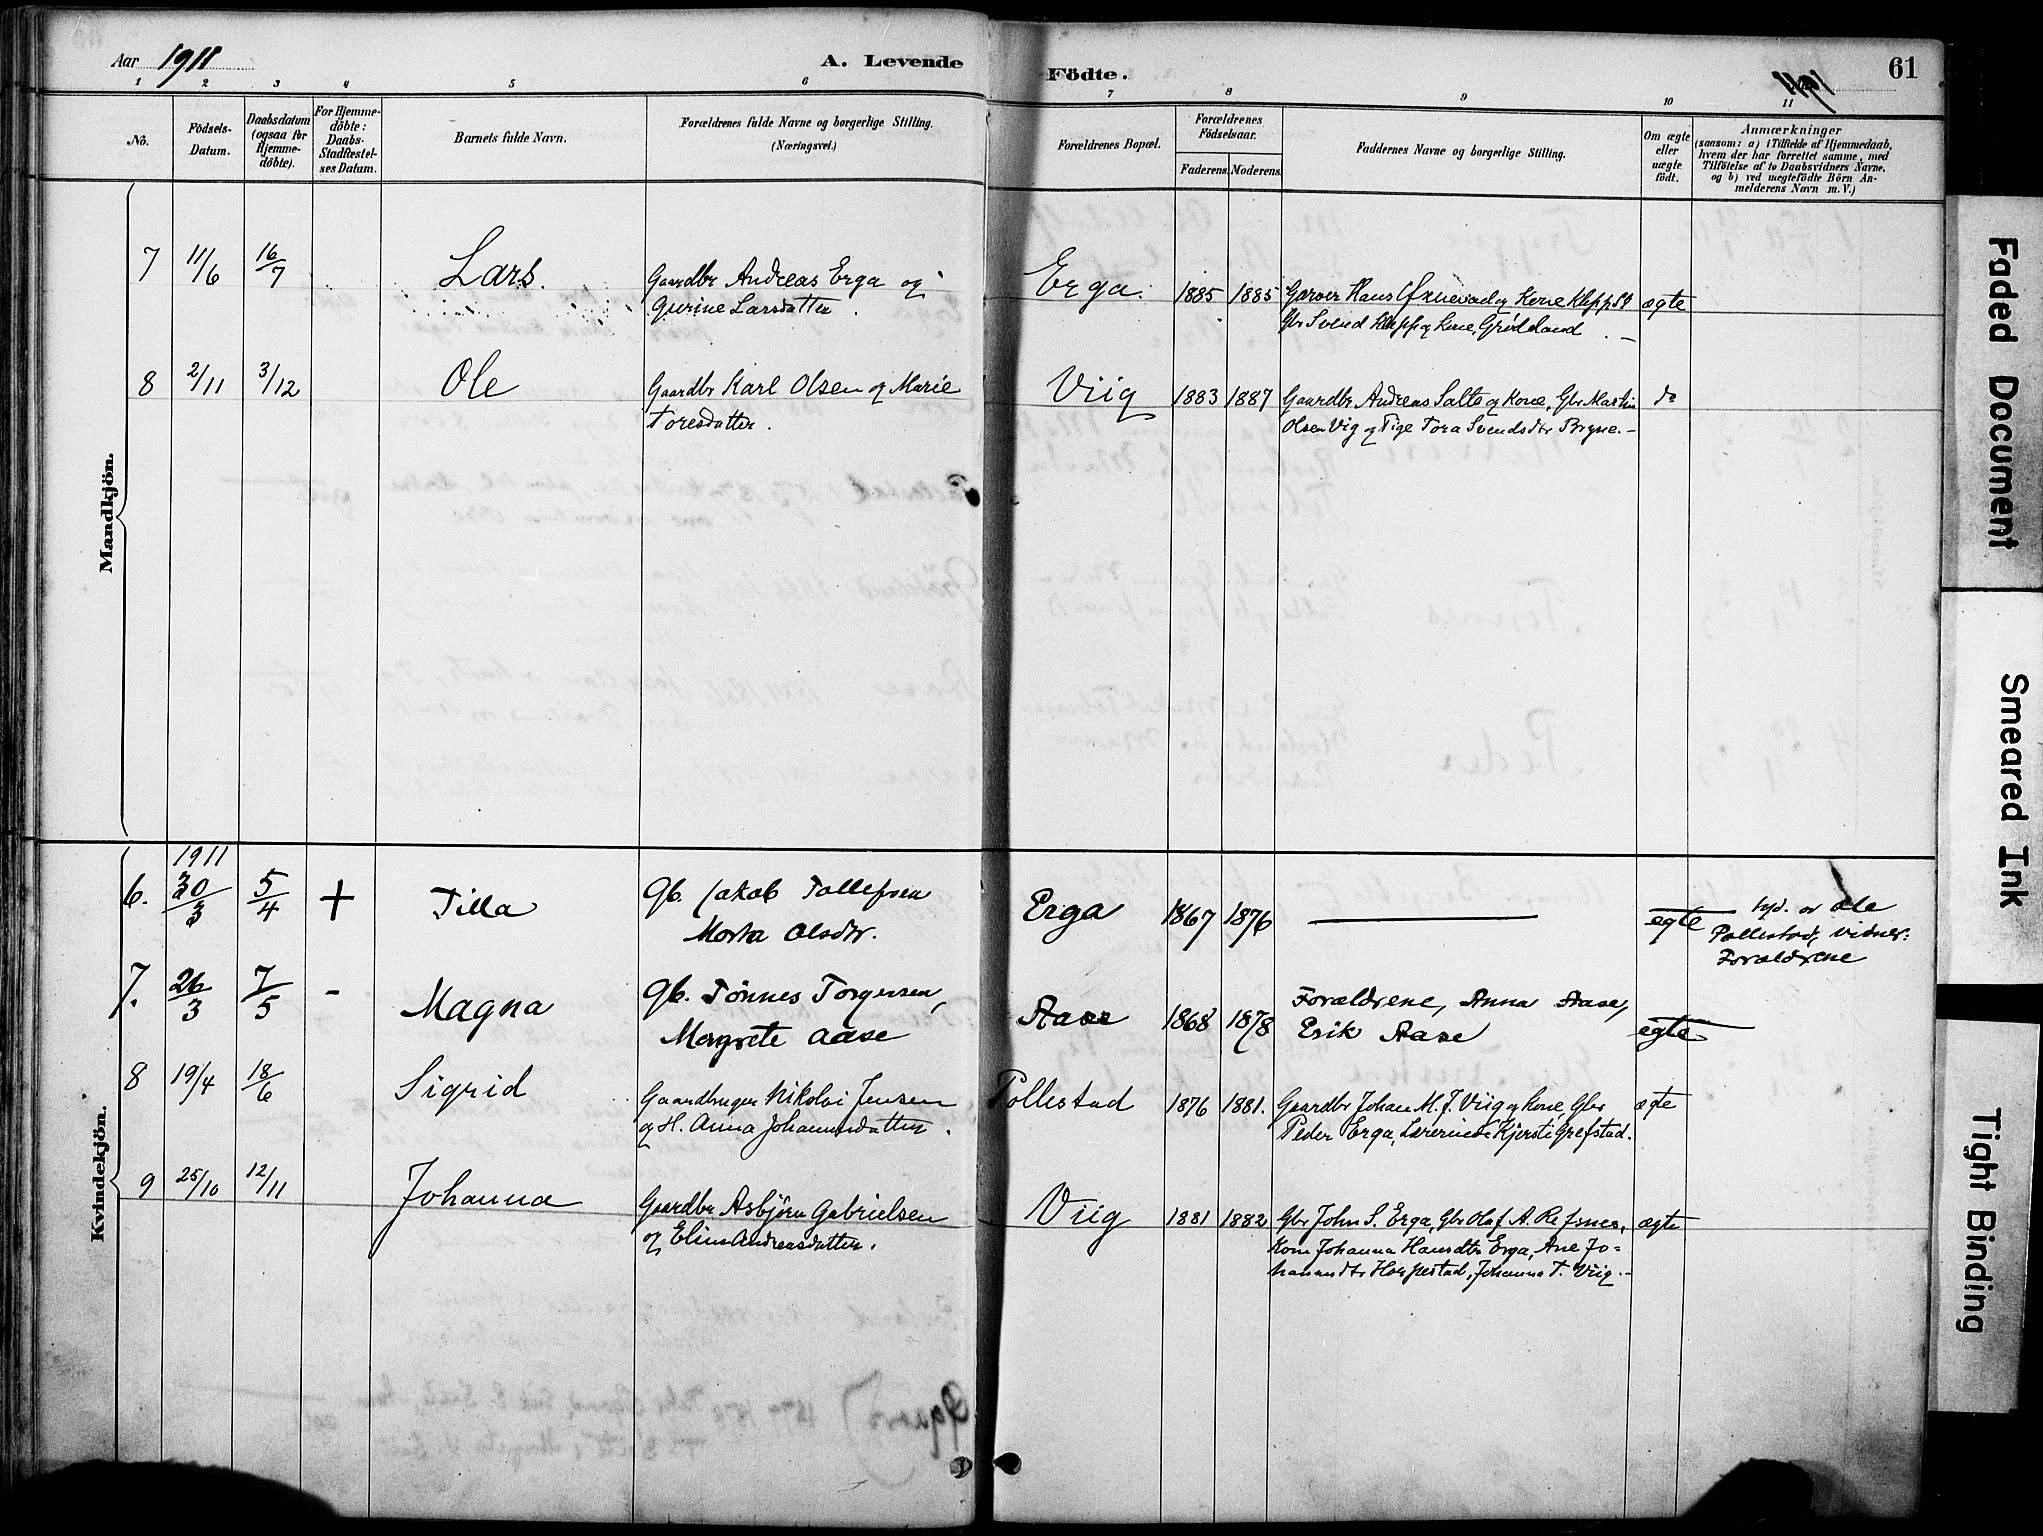 Aar 1911
A. Levende
Födte.
1911
61
1 2 3 4 5 6 7 8 9 10 11
No.
Födsels-
Datum.
Daabsdatum
(ogsaa for
Hjemme-
döbte).
For Hjemme-
döbte:
Daabs-
Stadfæstel-
ses Datum.
Barnets fulde Navn.
Forældrenes fulde Navne og borgerlige Stilling.
(Næringsvei.)
Forældrenes Bopæl.
Forældrenes
Födselsaar.
Faderens. Moderens.
Faddernes Navne og borgerlige Stilling.
Om ægte
eller
uægte
födt.
Anmærkninger
(saasom: a) i Tilfælde af Hjemmedaab,
hvem der har forrettet samme, med
Tilföielse af to Daabsvidners Navne.
og b) ved uægtefödte Börn An-
melderens Navn m. V.)
Mandkjön.
7 11/6 16/7 Lars. Gaardbr Andreas Erga og Erga. 1885 1885 Garver Hans og Kone Klepp St ægte
Gurine Larsdatter. Gbr Svend Klepp og Kone, Grødeland. -
8 2/11 3/12 Ole Gaardbr Karl Olsen og Marie Viig 1883 1887 Gaardbr Andreas Salte og Kone, Gbr Martin do
Toresdatter. Olsen Vig og Pige Tora Svendsdtr Bryne. -
Kvindekjön.
1911
6. 30/3 5/4 + Tilla Gb. Jakob Tollefsen Erga 1867 1876 — egte hjd. av Ole
Marta Olsdtr. Pollestad, vidner:
Forældrene
7. 26/3 7/5 - Magna Gb. Tönnes Torgersen, Aase 1868 1878 Forældrene, Anna Aase, egte
Margrete Aase Erik Aase
8 19/4 18/6 Sigrid Gaardbruger Nikolai Jensen Pollestad 1876 1881. Gaardbr Johan M. J. Viig og Kone, Gbr ægte
og H. Anna Johannesdatter. Peder Erga, Lærerinde Kjersti Grefstad.
9 25/10 12/11 Johanna Gaardbr Asbjörn Gabrielsen Viig 1881 1882 Gbr John S. Erga, Gbr Olaf A. Refsnes, ægte
og Elin Andreasdatter. Kone Johanna Hansdtr Erga, Ane Jo=
hannesdtr Horpestad, Johanna T. Viig. -
Faded Document
Smeared Ink
Tight Binding